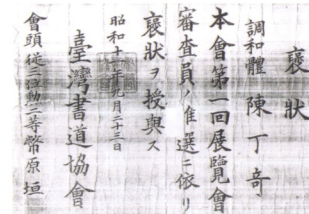 褒狀
調和體 陳丁奇
本會第一回展覽會
審査員ノ推選ニ依リ
褒狀ヲ授與ス
昭和十二年九月二十三日
臺灣書道協會
會頭從三位勳二等幣原坦